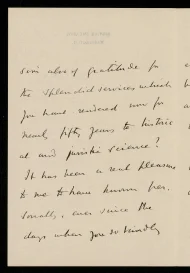 sion also of gratitude for
the splendid services which
you have rendered now for
nearly fifty years to historic
al and juristic science?
It has been a real pleasure
to me to have known per-
sonally, ever since the
days when you so kindly